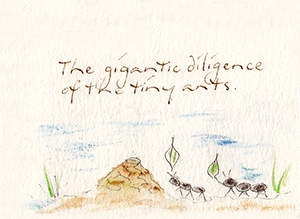 The gigantic diligence
of the tiny ants.